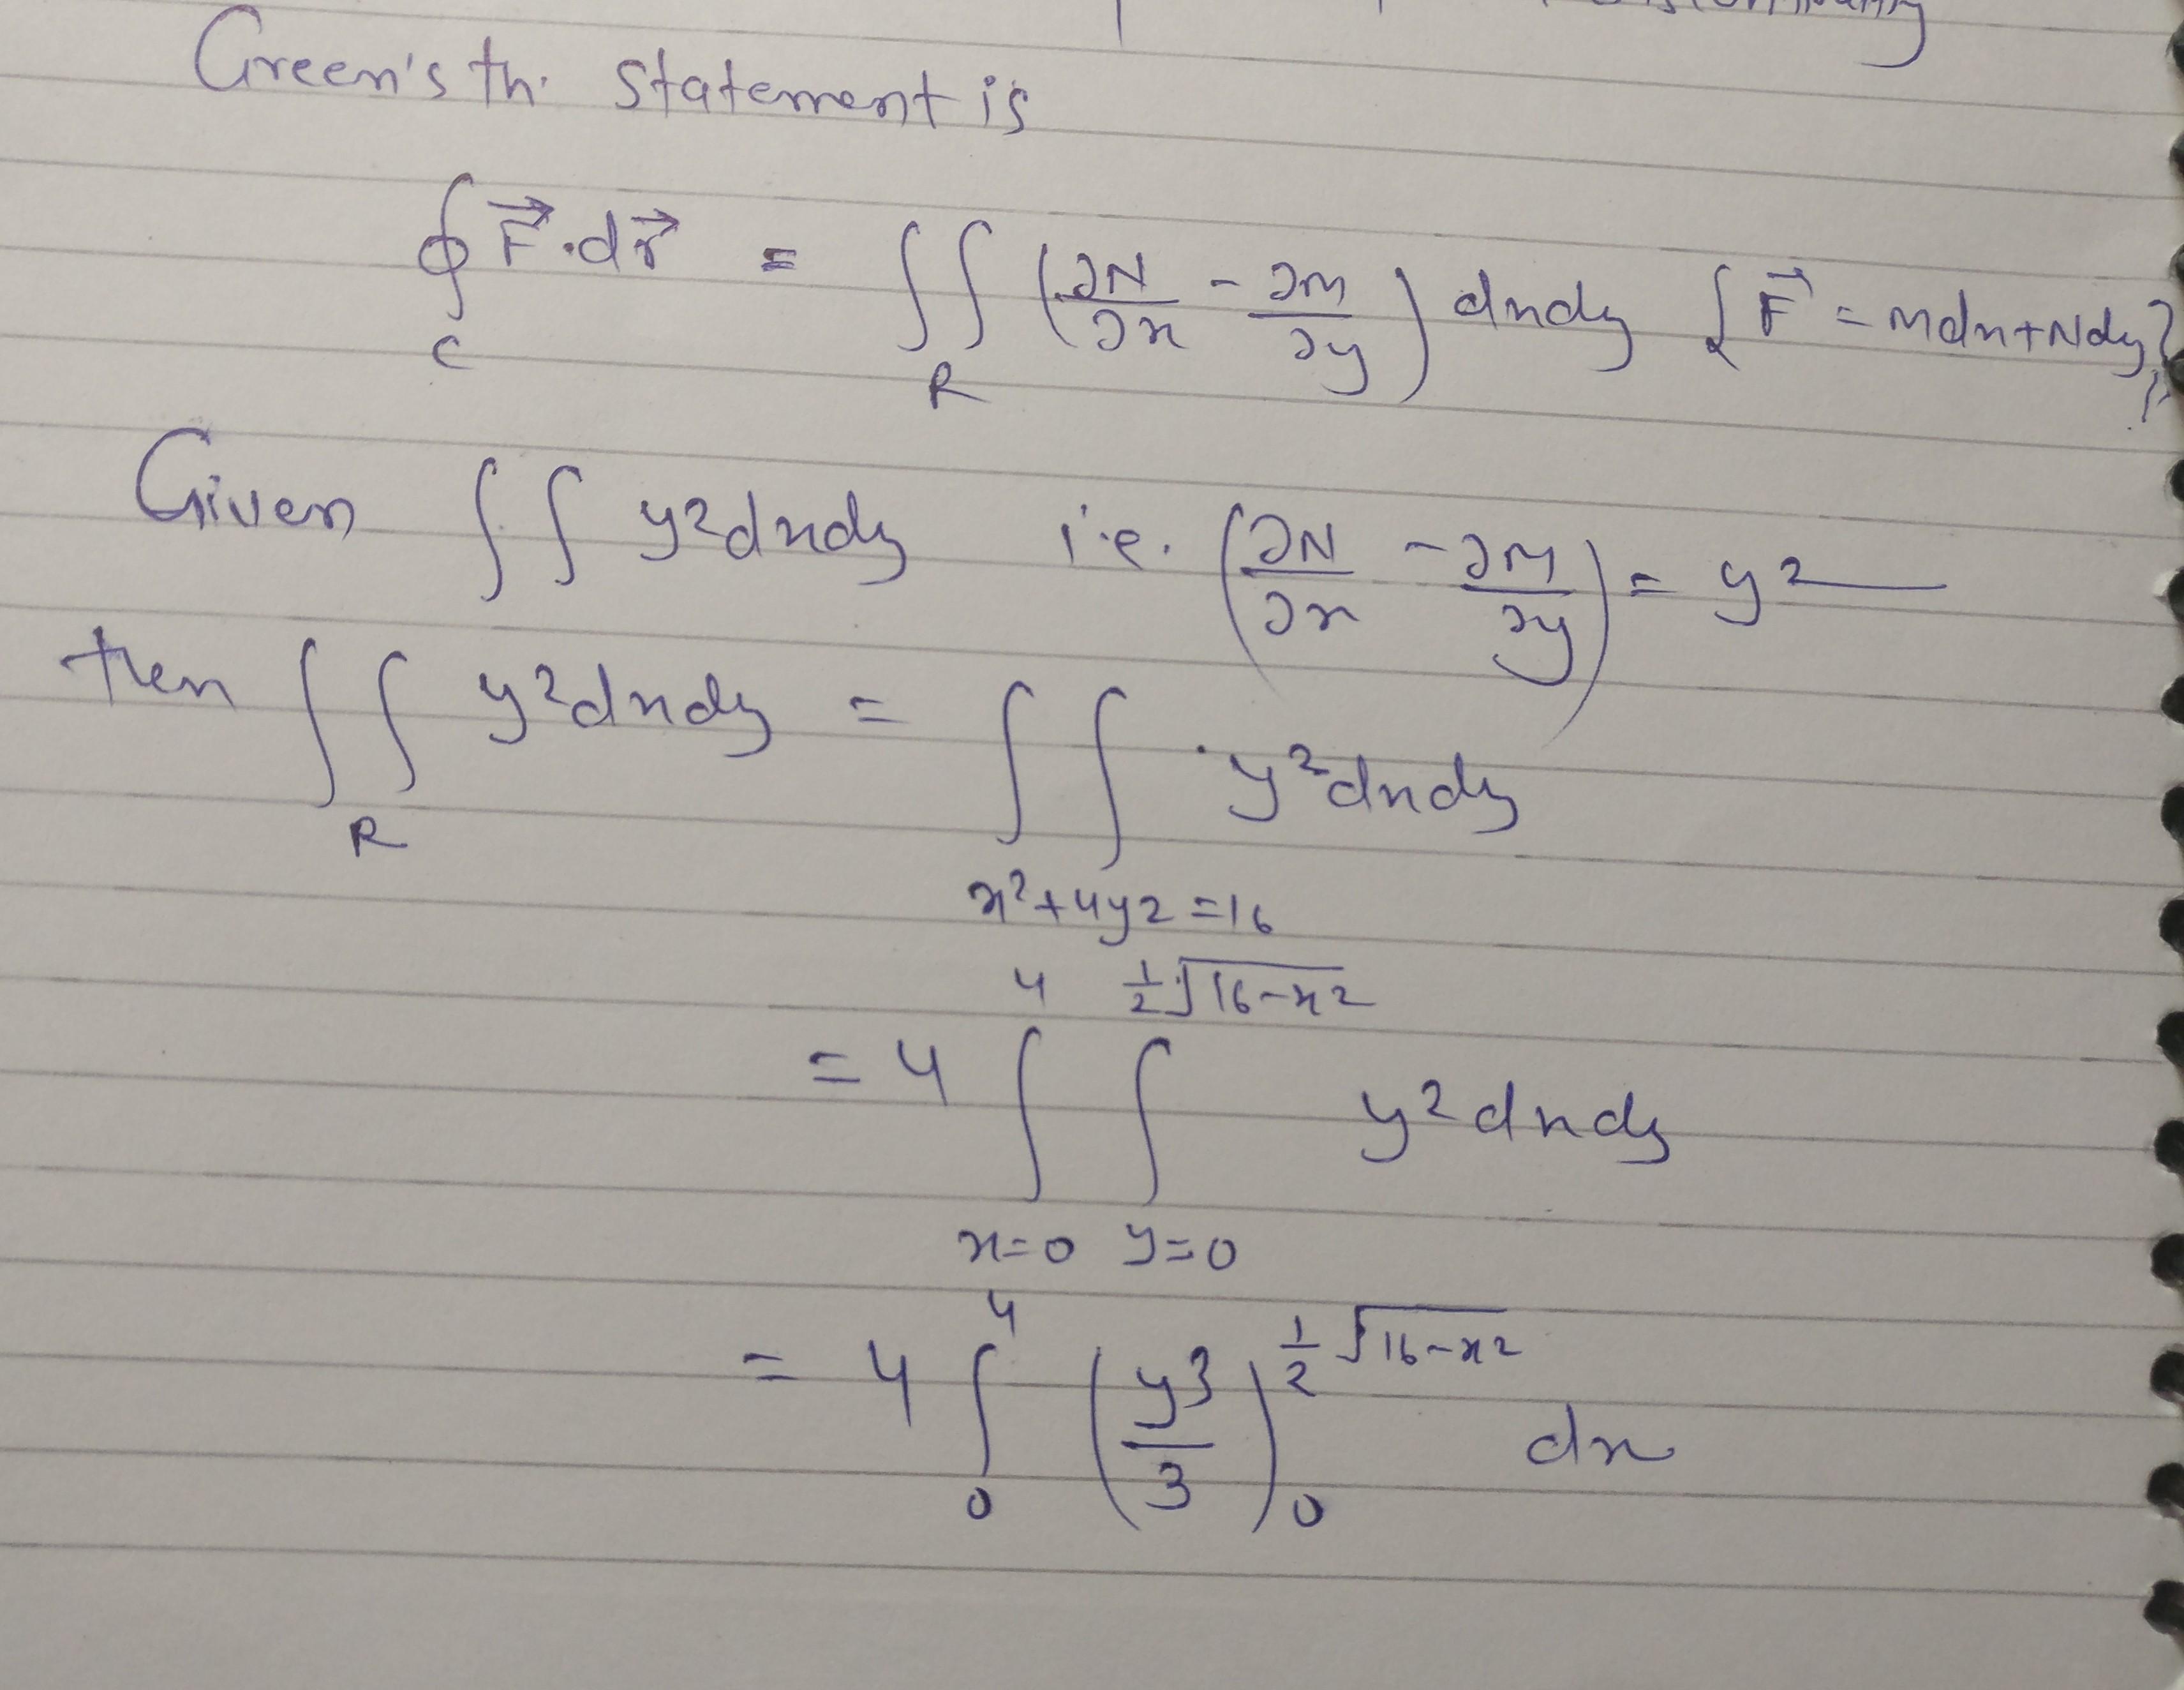 Green's th. statement is
∮_C F⃗·dr⃗ = ∬_R (∂N/∂x - ∂M/∂y) dxdy {F⃗ = Mdx+Ndy}
Given ∬ y²dxdy i.e. (∂N/∂x - ∂M/∂y) = y²
then ∬_R y²dxdy = ∬_{x²+4y²=16} y²dxdy
= 4 ∫_{x=0}^{4} ∫_{y=0}^{½√(16-x²)} y²dxdy
= 4 ∫_0^4 (y³/3)_0^{½√(16-x²)} dx